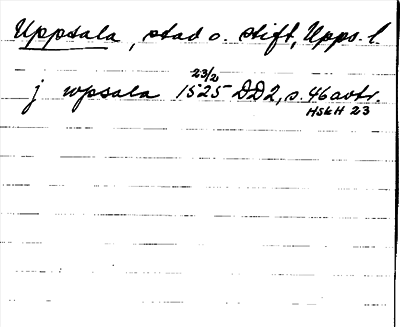 Uppsala, stad o. stift, Upps. l
j wpsala 23/2 1525 DD2, s. 46 avtr.
HSkH 23